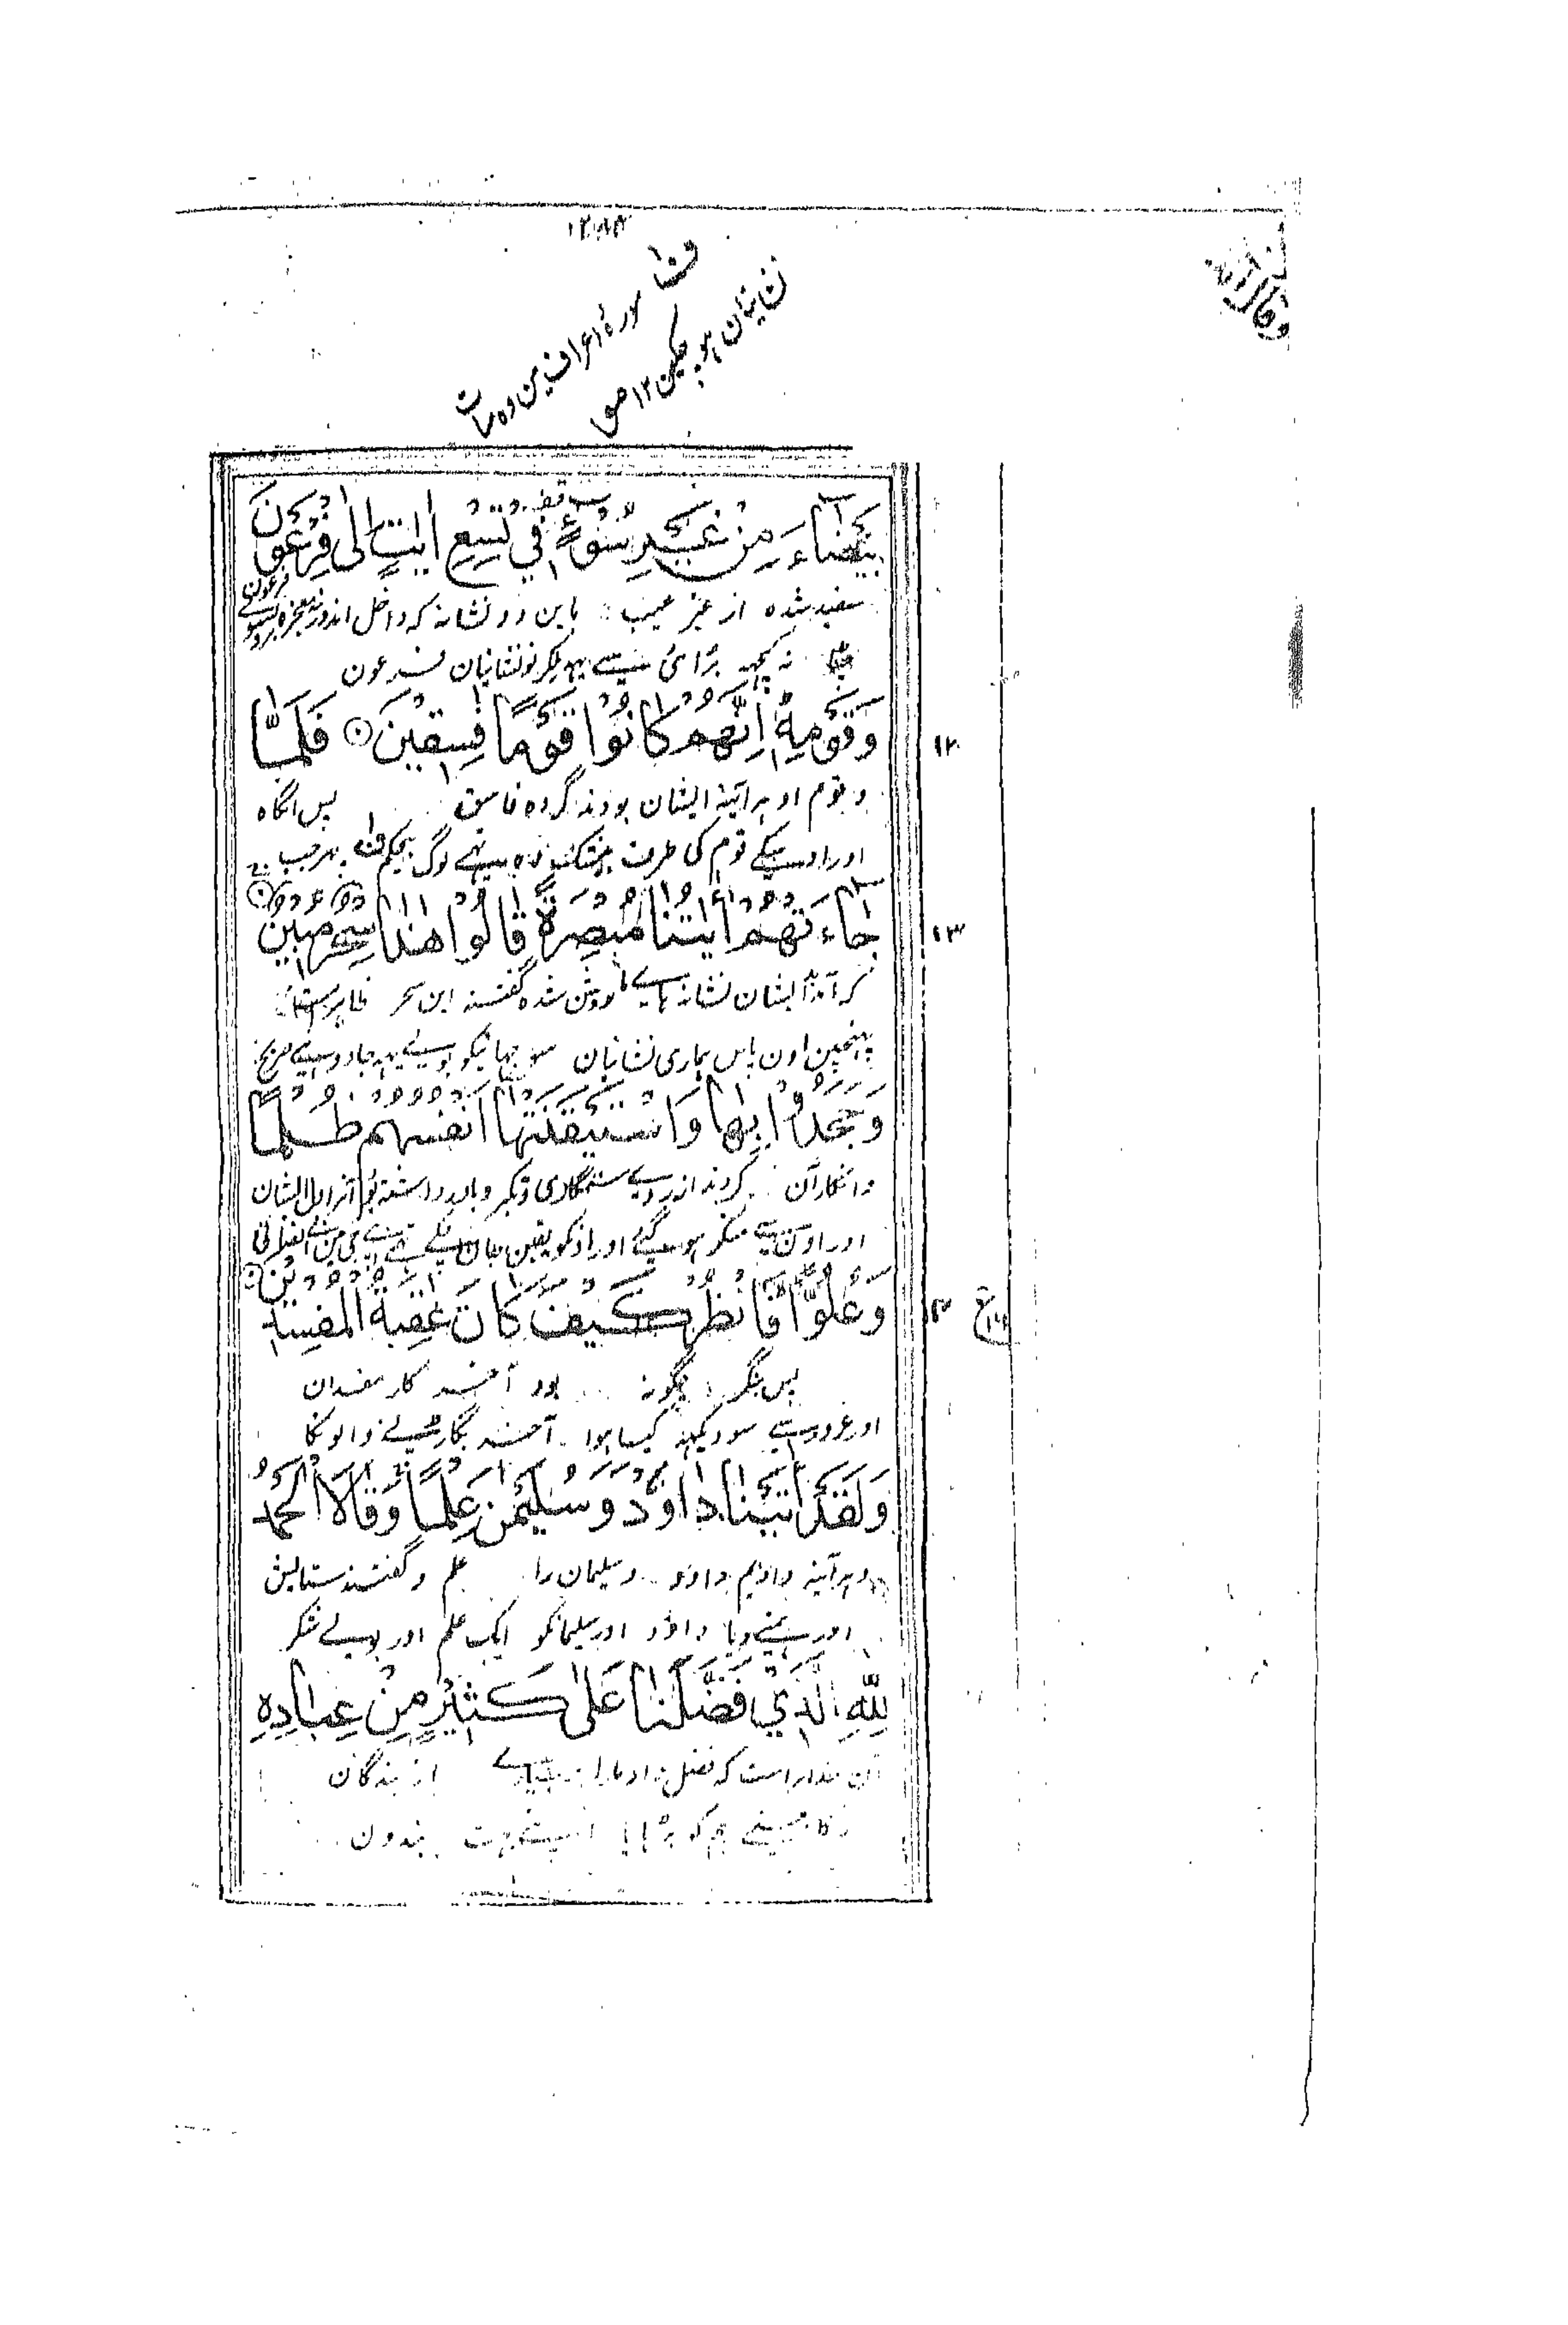 ١٢٨٨
ف١ سورۂ اعراف مین وہ سات
نشانیان ہو چکین ١٢ ص
بَيْضَاءَ مِنْ غَيْرِ سُوْءٍ فِيْ تِسْعِ اٰيٰتٍ اِلٰى فِرْعَوْنَ
سفید شده از غیر عیب باین دو نشانه که داخل اند در نه معجزه برو بسوے فرعون
نہ کچھ برائی سے یہہ ملکر نو نشانیان فرعون
وَقَوْمِهٖ اِنَّهُمْ كَانُوْا قَوْمًا فٰسِقِيْنَ ۝ فَلَمَّا
١٢
و قوم او ہرآئینہ ایشان بودند گروه فاسق پس انگاه
اور اوسکے قوم کی طرف بیشک وہ تہے لوگ بیحکم ف١ پہر جب
جَاءَتْهُمْ اٰيٰتُنَا مُبْصِرَةً قَالُوْا هٰذَا سِحْرٌ مُّبِيْنٌ ۝
١٣
که آمد ایشان نشانہاے ما روشن شده گفتند این سحر ظاہر است
پہنچین اون پاس ہماری نشانیان سوجہانیکو بولے یہہ جادو ہے صریح
وَجَحَدُوْا بِهَا وَاسْتَيْقَنَتْهَا اَنْفُسُهُمْ ظُلْمًا
و انکار آن کردند از روے ستمگاری و تکبر و باور داشتہ بود آنرا دل ایشان
اور اون سے منکر ہو گئے اور اونکو یقین جان چکے تہے
وَّعُلُوًّا فَانْظُرْ كَيْفَ كَانَ عٰقِبَةُ الْمُفْسِدِيْنَ ۝
١٤ ع
پس بنگر چگونه بود آخر کار مفسدان
اور غرور سے سو دیکہہ کیسا ہوا آخر بگاڑنے والونکا
وَلَقَدْ اٰتَيْنَا دَاوٗدَ وَسُلَيْمٰنَ عِلْمًا وَقَالَا الْحَمْدُ
و ہرآئینہ دادیم داود و سلیمان را علم و گفتند ستایش
اور ہمنے دیا داود اور سلیمانکو ایک علم اور بولے شکر
لِلّٰهِ الَّذِيْ فَضَّلَنَا عَلٰى كَثِيْرٍ مِّنْ عِبَادِهِ
آن خدا راست که فضل داد مارا بر بسیارے از بندگان
جسنے ہمکو بڑہایا اپنے بہت بندون